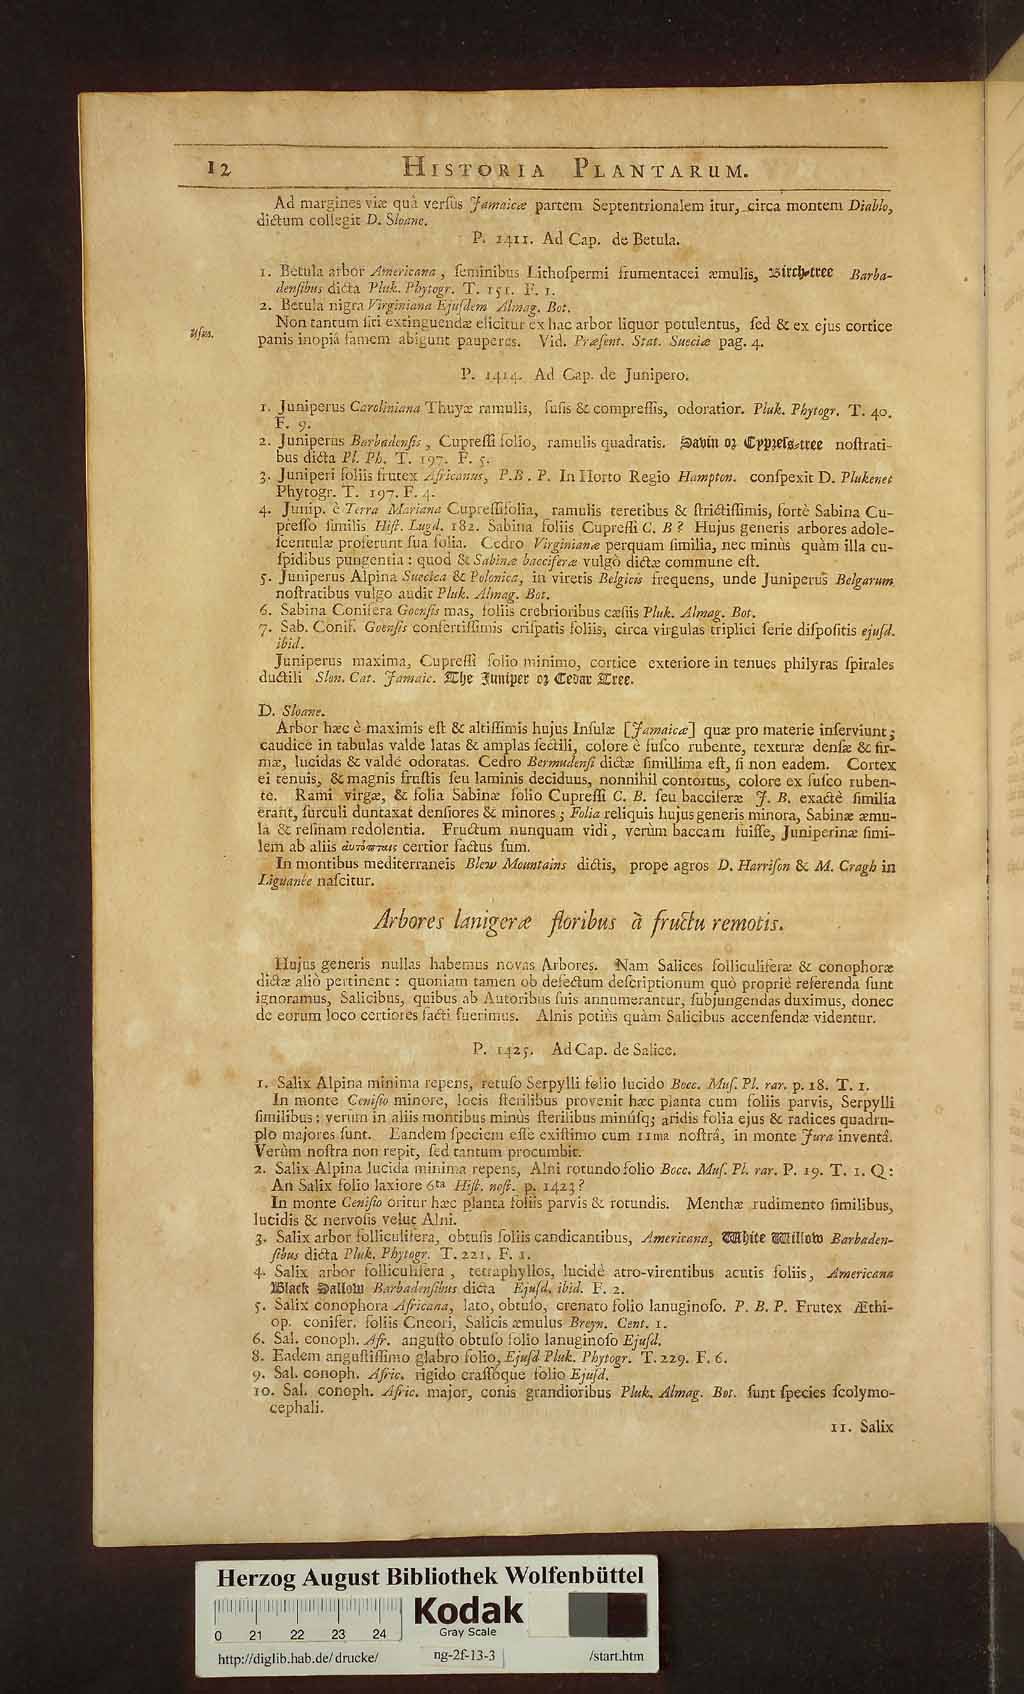 12 HISTORIA PLANTARUM.
Ad margines viæ quâ verſus Jamaicæ partem Septentrionalem itur, circa montem Diablo,
dictum collegit D. Sloane.
P. 1411. Ad Cap. de Betula.
1. Betula arbor Americana, ſeminibus Lithoſpermi frumentacei æmulis, Birch-tree Barba-
denſibus dicta Pluk. Phytogr. T. 151. F. 1.
2. Betula nigra Virginiana Ejuſdem Almag. Bot.
Non tantum ſiti extinguendæ elicitur ex hac arbor liquor potulentus, ſed & ex ejus cortice
Uſus.
panis inopiâ famem abigunt pauperes. Vid. Præſent. Stat. Sueciæ pag. 4.
P. 1414. Ad Cap. de Junipero.
1. Juniperus Caroliniana Thuyæ ramulis, fuſis & compreſſis, odoratior. Pluk. Phytogr. T. 40.
F. 9.
2. Juniperus Barbadenſis, Cupreſſi folio, ramulis quadratis. Savin oꝛ Cypꝛeſs-tree noſtrati-
bus dicta Pl. Ph. T. 197. F. 5.
3. Juniperi foliis frutex Africanus, P.B. P. In Horto Regio Hampton. conſpexit D. Plukenet
Phytogr. T. 197. F. 4.
4. Junip. è Terra Mariana Cupreſſifolia, ramulis teretibus & ſtrictiſſimis, fortè Sabina Cu-
preſſo ſimilis Hiſt. Lugd. 182. Sabina foliis Cupreſſi C. B? Hujus generis arbores adole-
ſcentulæ proferunt ſua folia. Cedro Virginianæ perquam ſimilia, nec minùs quàm illa cu-
ſpidibus pungentia : quod & Sabinæ bacciferæ vulgò dictæ commune eſt.
5. Juniperus Alpina Suecica & Polonica, in viretis Belgicis frequens, unde Juniperus Belgarum
noſtratibus vulgo audit Pluk. Almag. Bot.
6. Sabina Conifera Goenſis mas, foliis crebrioribus cæſiis Pluk. Almag. Bot.
7. Sab. Conif. Goenſis confertiſſimis criſpatis foliis, circa virgulas triplici ſerie diſpoſitis ejuſd.
ibid.
Juniperus maxima, Cupreſſi folio minimo, cortice exteriore in tenues philyras ſpirales
ductili Slon. Cat. Jamaic. The Juniper oꝛ Cedar Tree.
D. Sloane.
Arbor hæc è maximis eſt & altiſſimis hujus Inſulæ [Jamaicæ] quæ pro materie inſerviunt;
caudice in tabulas valde latas & amplas ſectili, colore è fuſco rubente, texturæ denſæ & fir-
mæ, lucidas & valdé odoratas. Cedro Bermudenſi dictæ ſimillima eſt, ſi non eadem. Cortex
ei tenuis, & magnis fruſtis ſeu laminis deciduus, nonnihil contortus, colore ex fuſco ruben-
te. Rami virgæ, & folia Sabinæ folio Cupreſſi C. B. ſeu bacciferæ J. B. exactè ſimilia
erant, ſurculi duntaxat denſiores & minores; Folia reliquis hujus generis minora, Sabinæ æmu-
la & reſinam redolentia. Fructum nunquam vidi, verùm baccam fuiſſe, Juniperinæ ſimi-
lem ab aliis αὐτόπταις certior factus ſum.
In montibus mediterraneis Blew Mountains dictis, prope agros D. Harriſon & M. Cragh in
Liguanée naſcitur.
Arbores lanigeræ floribus à fructu remotis.
Hujus generis nullas habemus novas Arbores. Nam Salices folliculiferæ & conophoræ
dictæ aliò pertinent : quoniam tamen ob defectum deſcriptionum quò propriè referenda ſunt
ignoramus, Salicibus, quibus ab Autoribus ſuis annumerantur, ſubjungendas duximus, donec
de eorum loco certiores facti fuerimus. Alnis potiùs quàm Salicibus accenſendæ videntur.
P. 1425. Ad Cap. de Salice.
1. Salix Alpina minima repens, retuſo Serpylli folio lucido Bocc. Muſ. Pl. rar. p. 18. T. 1.
In monte Ceniſio minore, locis ſterilibus provenit hæc planta cum foliis parvis, Serpylli
ſimilibus: verùm in aliis montibus minùs ſterilibus minúſq; aridis folia ejus & radices quadru-
plo majores ſunt. Eandem ſpeciem eſſe exiſtimo cum 11ma noſtrâ, in monte Jura inventâ.
Verùm noſtra non repit, ſed tantum procumbit.
2. Salix Alpina lucida minima repens, Alni rotundo folio Bocc. Muſ. Pl. rar. P. 19. T. 1. Q:
An Salix folio laxiore 6ta Hiſt. noſt. p. 1423?
In monte Ceniſio oritur hæc planta foliis parvis & rotundis. Menthæ rudimento ſimilibus,
lucidis & nervoſis velut Alni.
3. Salix arbor folliculifera, obtuſis foliis candicantibus, Americana, White Willow Barbaden-
ſibus dicta Pluk. Phytogr. T. 221. F. 1.
4. Salix arbor folliculifera, tetraphyllos, lucidè atro-virentibus acutis foliis, Americana
Black Sallow Barbadenſibus dicta Ejuſd. ibid. F. 2.
5. Salix conophora Africana, lato, obtuſo, crenato folio lanuginoſo. P. B. P. Frutex Æthi-
op. conifer. foliis Cneori, Salicis æmulus Breyn. Cent. 1.
6. Sal. conoph. Afr. anguſto obtuſo folio lanuginoſo Ejuſd.
8. Eadem anguſtiſſimo glabro folio, Ejuſd Pluk. Phytogr. T. 229. F. 6.
9. Sal. conoph. Afric. rigido craſſoque folio Ejuſd.
10. Sal. conoph. Afric. major, conis grandioribus Pluk. Almag. Bot. ſunt ſpecies ſcolymo-
cephali.
11. Salix
Herzog August Bibliothek Wolfenbüttel
Kodak
Gray Scale
0 21 22 23 24
http://diglib.hab.de/drucke/ ng-2f-13-3 /start.htm